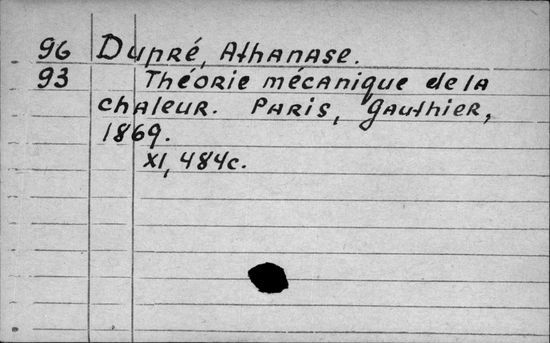 96 Dupré, Athanase.
93 Théorie mécanique de la
chaleur. Paris, Gauthier,
1869.
XI, 484c.